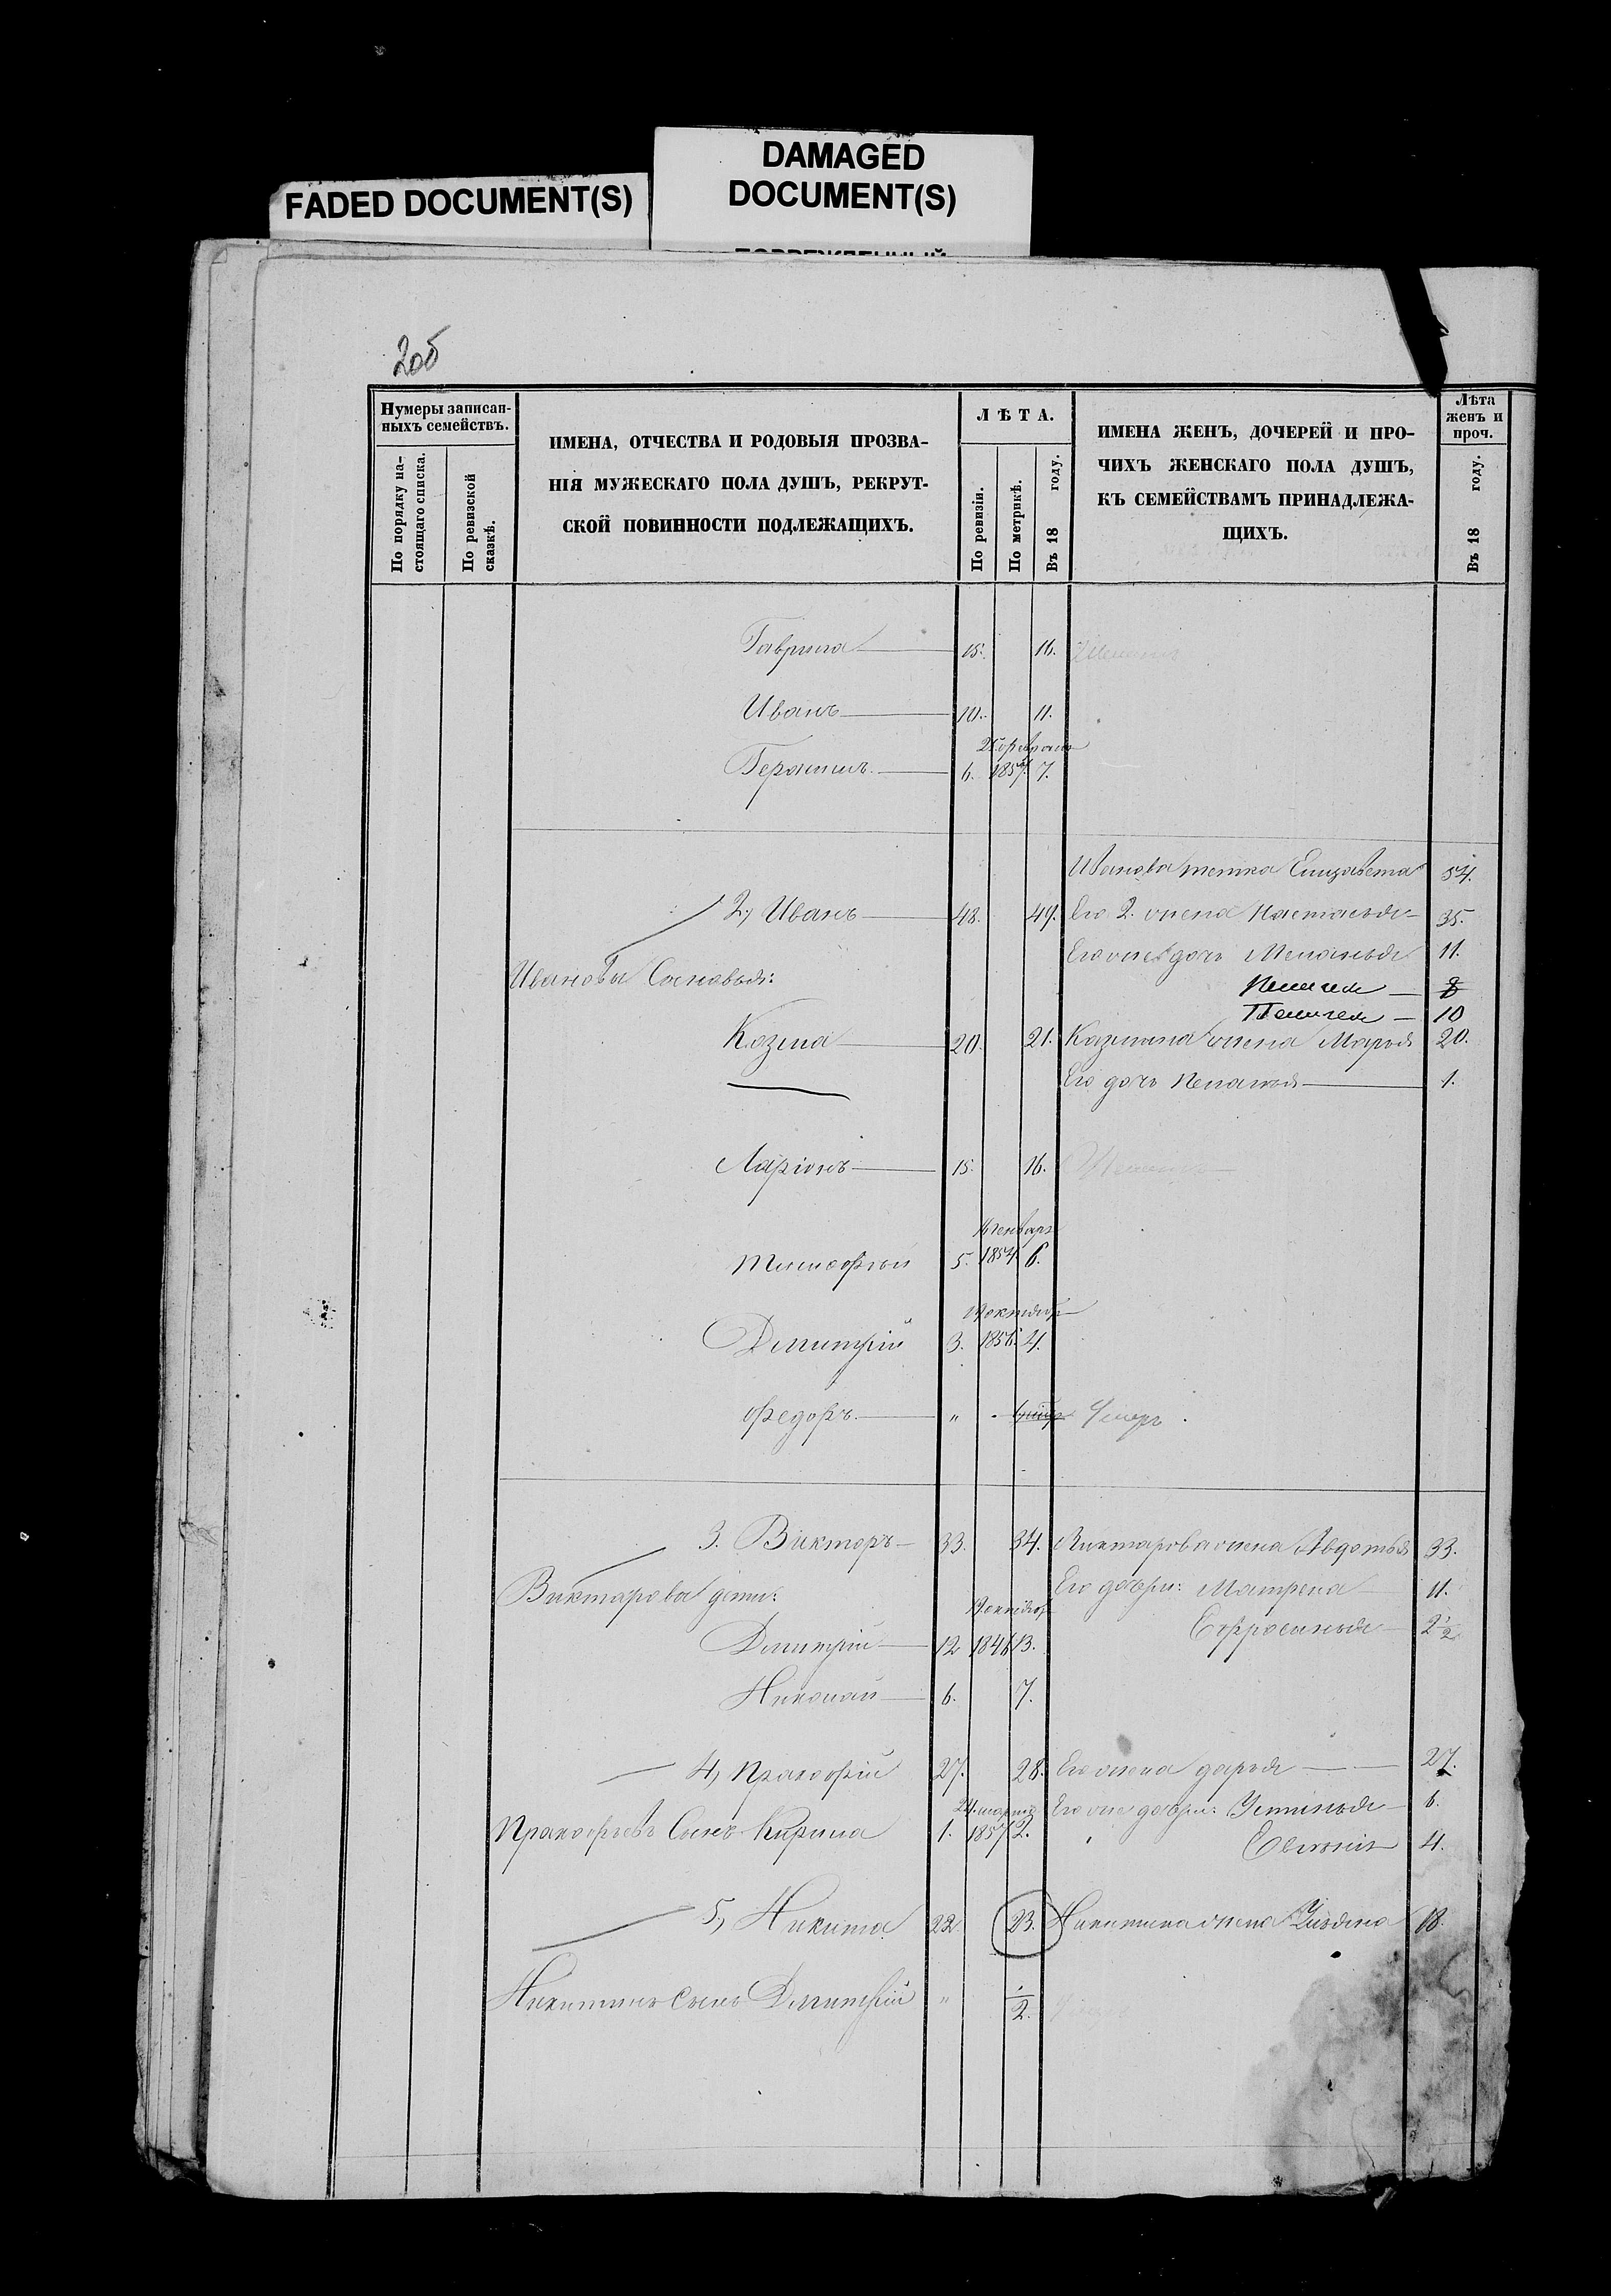 FADED DOCUMENT(S)
DAMAGED
DOCUMENT(S)
20б
Нумеры записан-
ныхъ семействъ.
По порядку на-
стоящаго списка.
По ревизской
сказкѣ.
ИМЕНА, ОТЧЕСТВА И РОДОВЫЯ ПРОЗВА-
НІЯ МУЖЕСКАГО ПОЛА ДУШЪ, РЕКРУТ-
СКОЙ ПОВИННОСТИ ПОДЛЕЖАЩИХЪ.
ЛѢТА.
По ревизіи.
По метрикѣ.
Въ 18 году.
ИМЕНА ЖЕНЪ, ДОЧЕРЕЙ И ПРО-
ЧИХЪ ЖЕНСКАГО ПОЛА ДУШЪ,
КЪ СЕМЕЙСТВАМЪ ПРИНАДЛЕЖА-
ЩИХЪ.
Лѣта
женъ и
проч.
Въ 18 году.
Гаврила 15. 16.
Иванъ 10. 11.
Герасимъ 6. 1857. 7.
Иванова тетка Елизавета 54.
2, Иванъ 48. 49. Его 2. жена Настасья 35.
Его же дочь Меланья 11.
Ивановы Сыновья:
Пелагея 8
Пелагея 10
Козма 20. 21. Казмина жена Марья 20.
Его дочь Пелагея 1.
Ларіонъ 15. 16.
Генваря
Тимофей 5. 1854 6.
октября
Дмитрій 3. 1856. 4.
Федоръ " Умеръ.
3. Викторъ 33. 34. Виктарова жена Авдотья 33.
Виктарова дети: Его дочери: Матрена 11.
октября
Ефросинья 2 1/2
Дмитрій 12 1846 13.
Николай 6. 7.
4, Пракофій 27. 28. Его жена дарья 27.
24. марта Его же дочери: Устинья 6.
Пракофьевъ Сынъ Кирила 1. 1857 2.
Евгенія 4.
5, Никита 22. 23. Никитина жена 18.
Никитинъ Сынъ Дмитрій " 1/2.